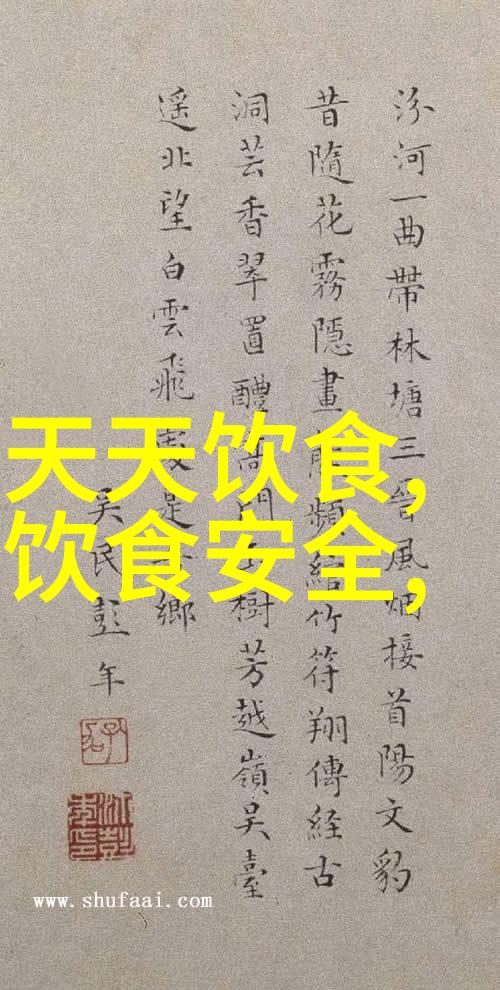 汾河一曲帶林塘三晉風烟接首陽文豹
昔隨花霧隱畫頻結竹符翔傳經古
洞芸香翠置醴門樹芳越嶺吳臺
遥北望白雲飛是鄉
吳民彭年
天天饮食,
饮食安全,
www.shufaai.com